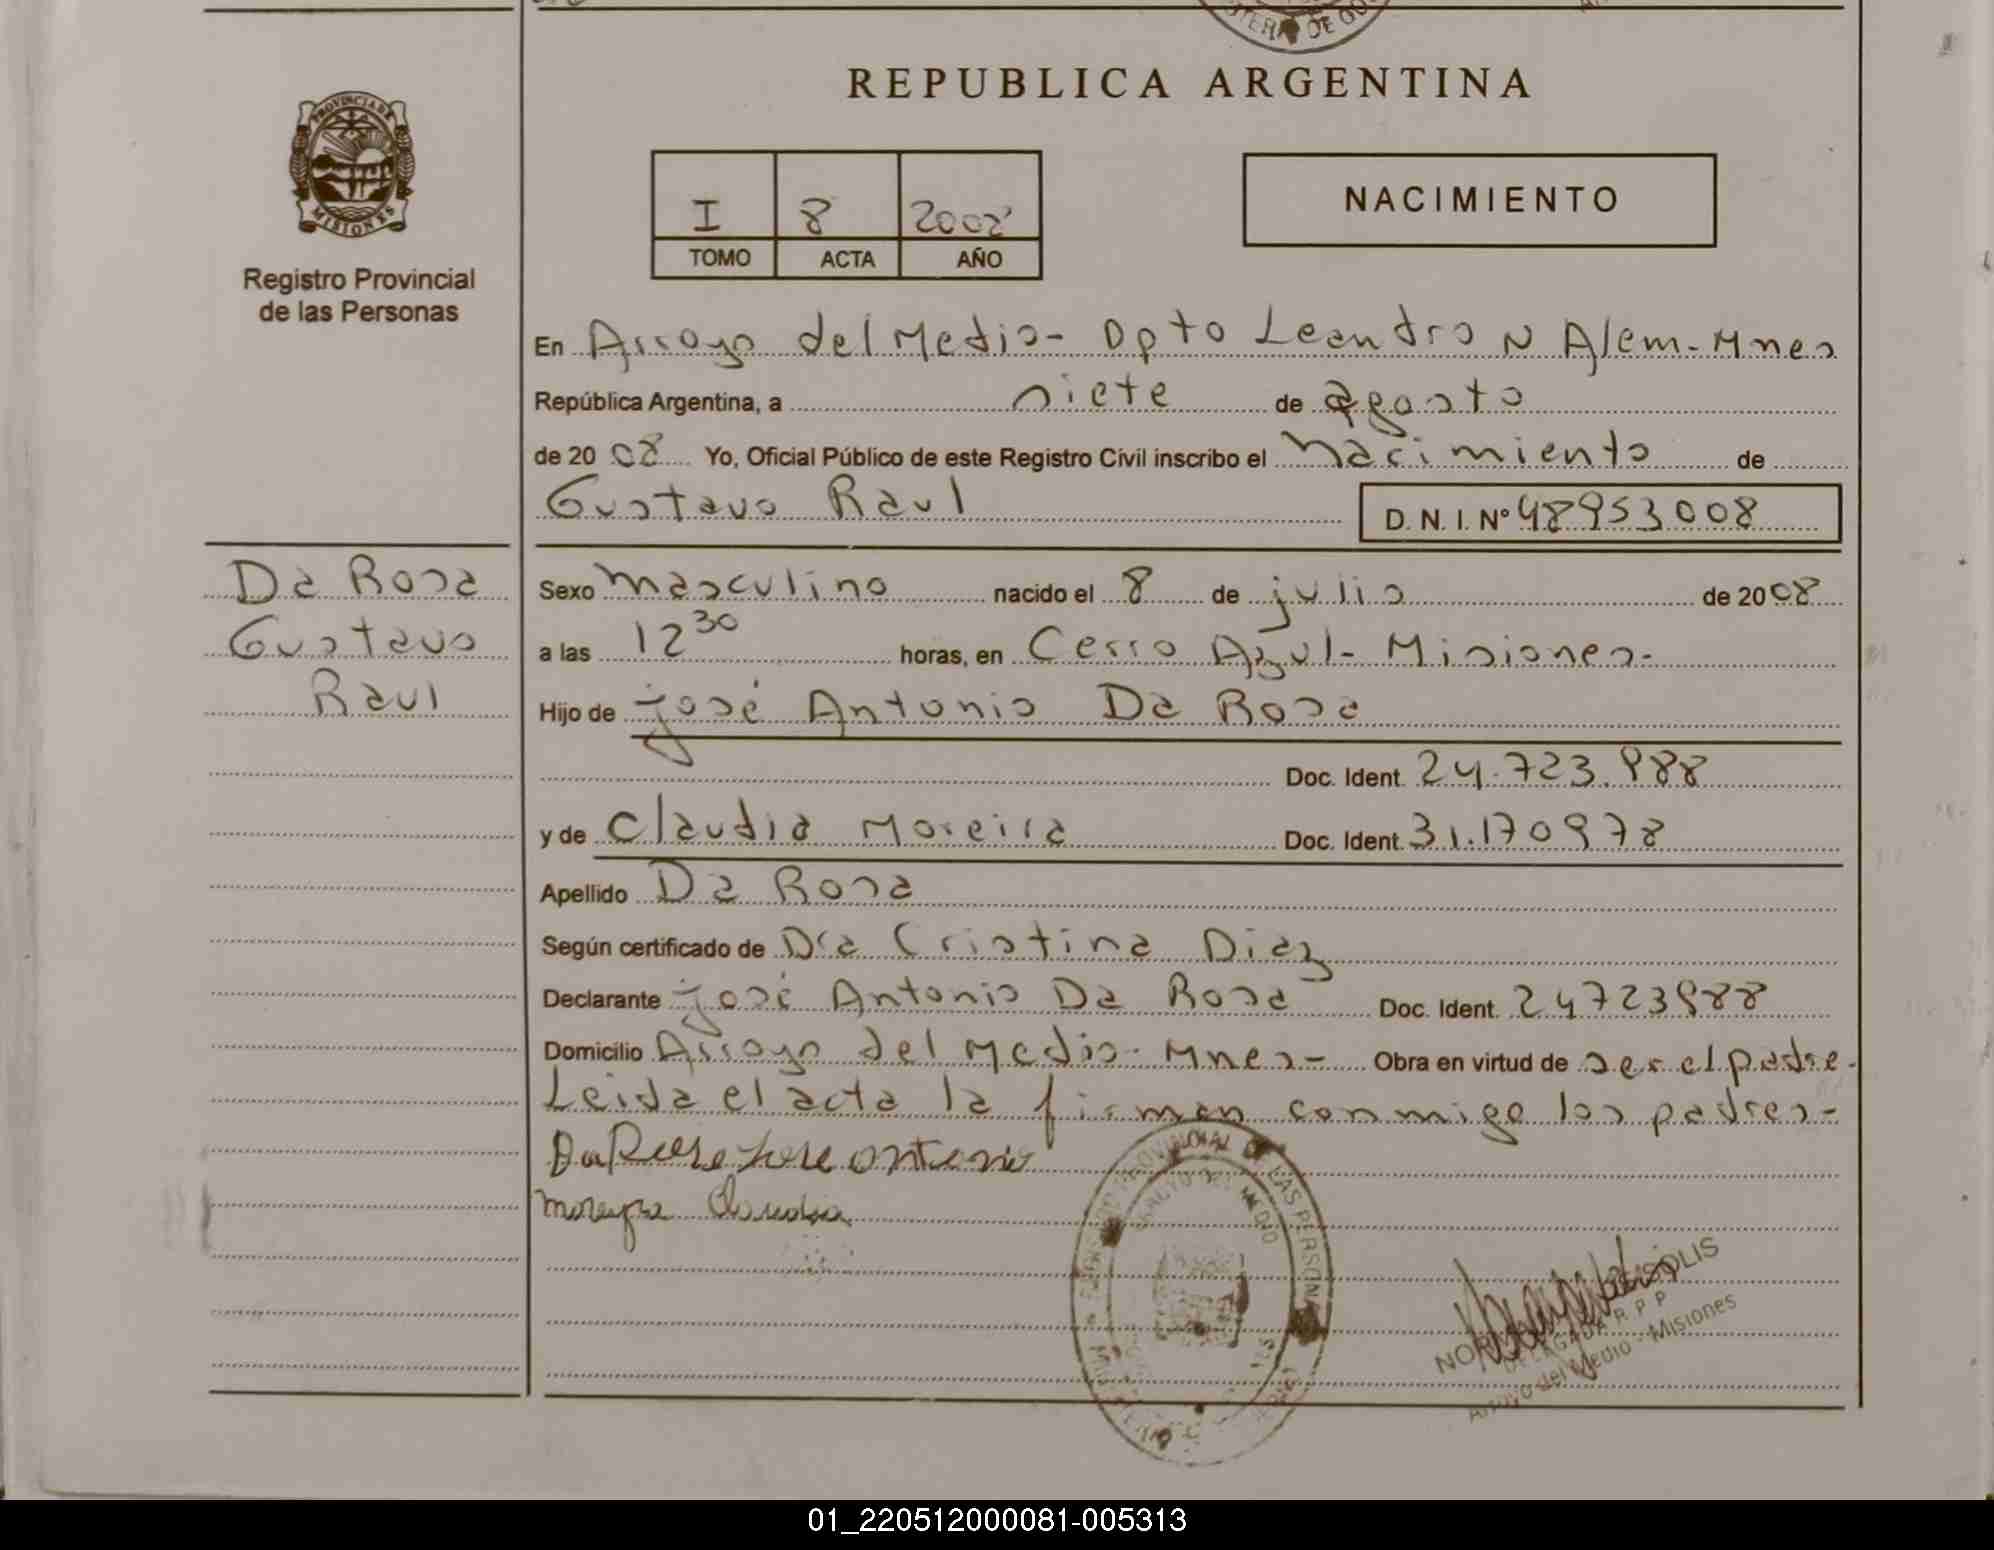 REPUBLICA ARGENTINA
PROVINCIA DE
MISIONES
Registro Provincial
de las Personas
I 8 2008
TOMO ACTA AÑO
NACIMIENTO
En Arroyo del Medio- Dpto Leandro N Alem-Mnes
República Argentina, a siete de agosto
de 20 08 Yo, Oficial Público de este Registro Civil inscribo el nacimiento de
Gustavo Raul D. N. I. Nº 48953008
Da Rosa
Gustavo
Raul
Sexo masculino nacido el 8 de julio de 2008
a las 12 30 horas, en Cerro Azul- Misiones-
Hijo de josé Antonio Da Rosa
Doc. Ident. 24.723.988
y de Claudia Moreira Doc. Ident. 31.170978
Apellido Da Rosa
Según certificado de Dra Cristina Diaz
Declarante josé Antonio Da Rosa Doc. Ident. 24723988
Domicilio Arroyo del Medio- Mnes- Obra en virtud de ser el padre-
Leida el acta la firman conmigo los padres-
Da Rosa Jose antonio
Moreyra Claudia
PROVINCIAL DE LAS PERSONAS
ARROYO DEL MEDIO
SOLIS
DELEGADA R P P
Arroyo del Medio - Misiones
01_220512000081-005313